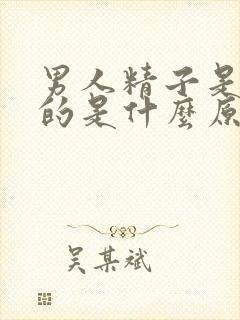 男人精子是
的是什麼原
吴某斌